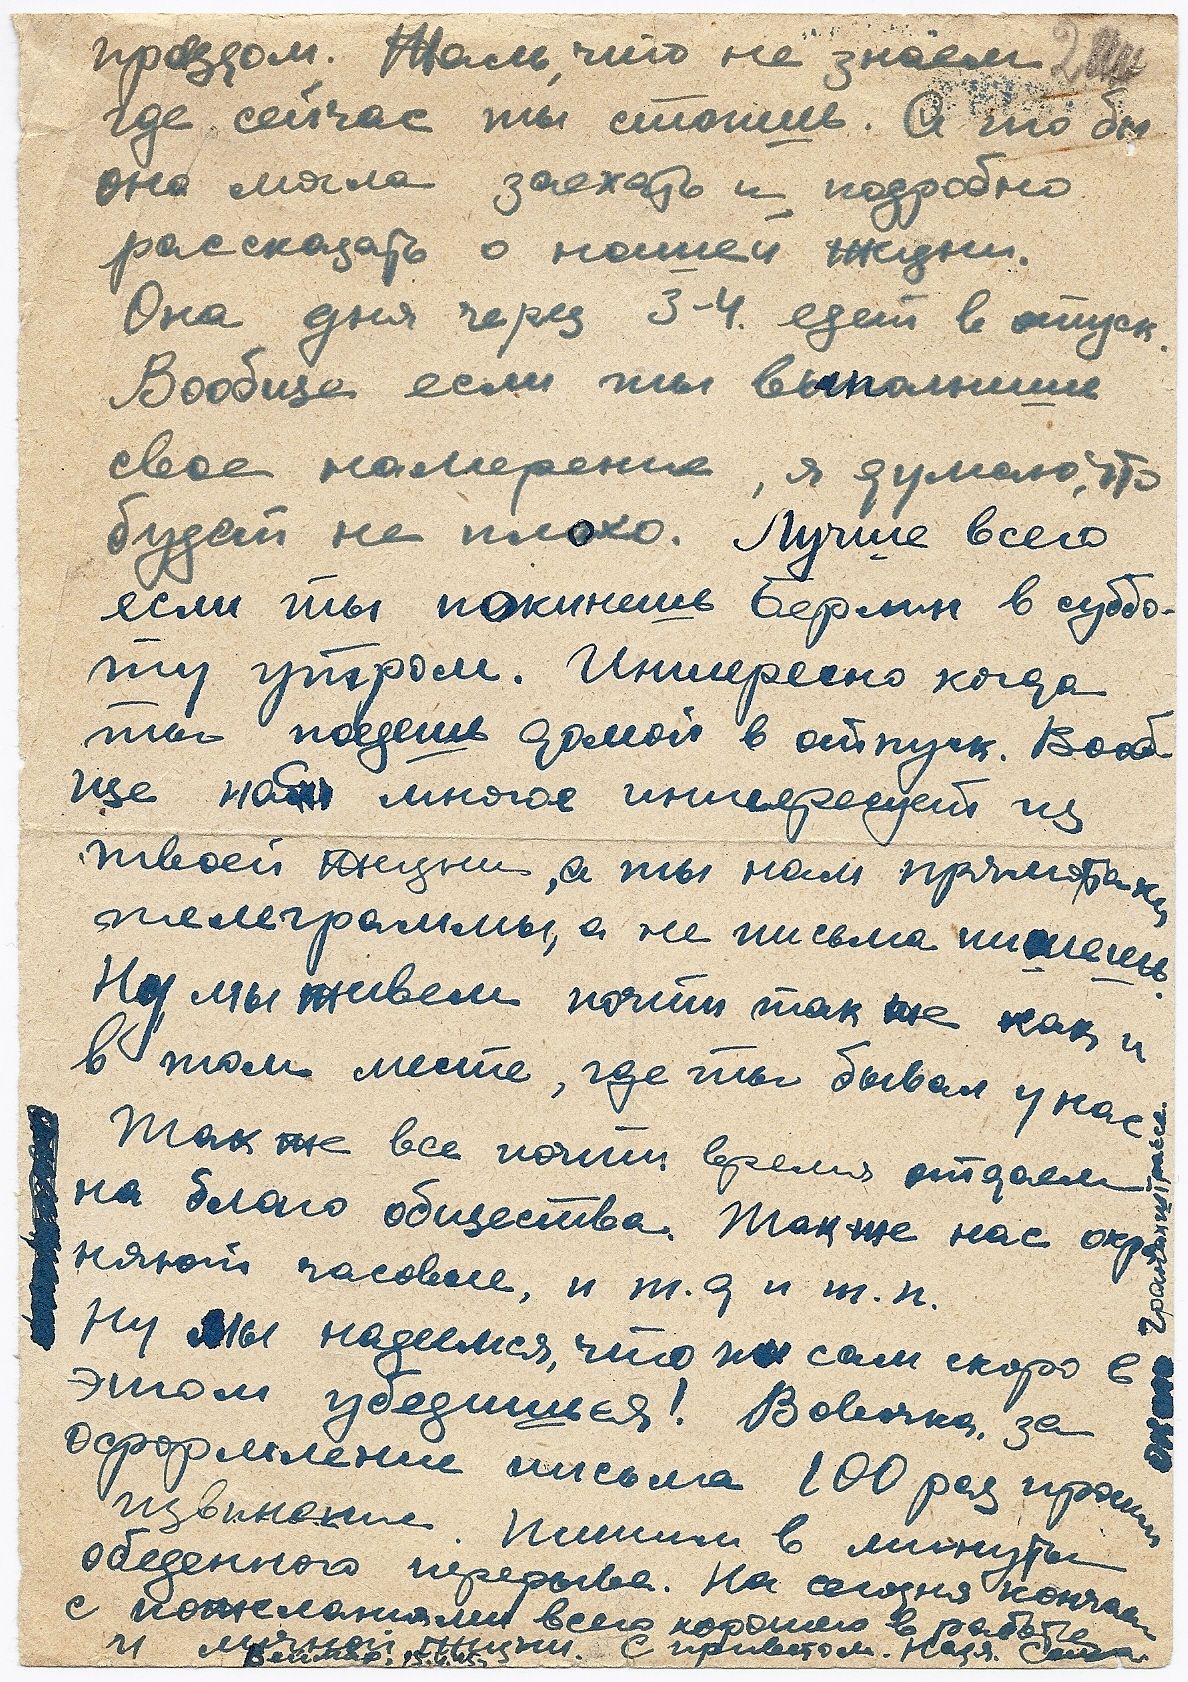 проездом. Жаль, что не знаем
где сейчас ты стоишь. А то бы
она могла заехать и подробно
рассказать о нашей жизни.
Она дня через 3-4. едет в отпуск.
Вообще если ты выполнишь
свое намерение, я думаю, что
будет не плохо. Лучше всего
если ты покинешь Берлин в суббо-
ту утром. Интересно когда
ты поедешь домой в отпуск. Вооб
ще нас многое интересует из
твоей жизни, а ты нам прямо таки
телеграммы, а не письма пишешь.
Ну, мы живем почти так же как и
в том месте, где ты бывал у нас
Так же все почти время отдаем
на благо общества. Так же нас охра
няют часовые, и т.д и т.п.
Ну мы надеемся, что ты сам скоро в
этом убедишься! Вовочка, за
оформление письма 100 раз просим
извинения. Пишем в минуты
обеденного перерыва. На сегодня кончаем
с пожеланиями всего хорошего в работе
и личной жизни. С приветом. Надя.
Веймар.